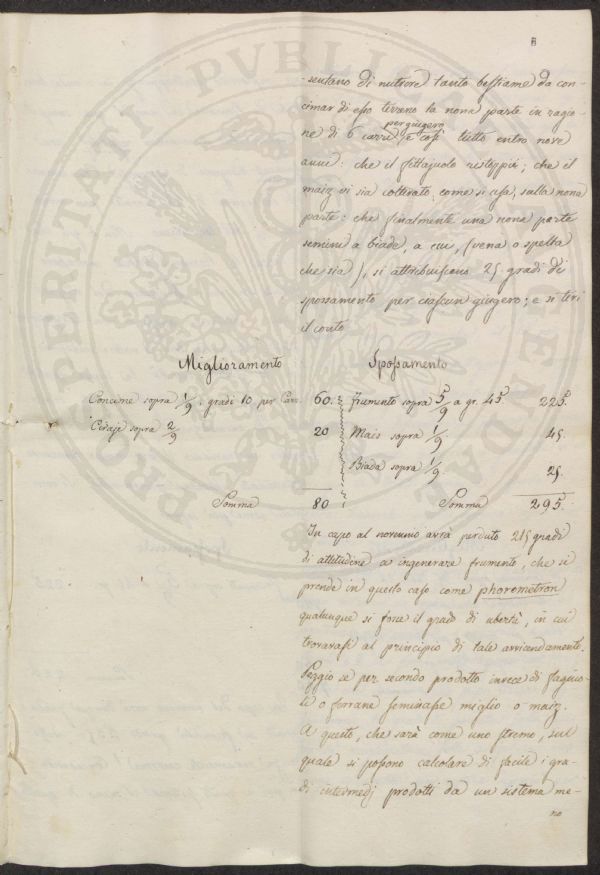 8
-sentano di nutrire tanto bestiame da con-
cimar di esso terreno la nona parte in ragio-
ne di 6 carri per giugero e così tutto entro nove
anni: che il fittajuolo ristoppii; che il
maiz vi sia coltivato, come si usa, sulla nona
parte: che finalmente una nona parte
semini a biade, a cui, (vena o spelta
che sia), si attribuiscono 25 gradi di
spossamento per ciascun giugero; e si tiri
il conto
Miglioramento Spossamento
Concime sopra 1/9. gradi 10 per Carro 60. Frumento sopra 5/9 a gr. 45 225.
Cedraje sopra 2/9 20 Maiz sopra 1/9 45.
Biada sopra 1/9 25.
Somma 80 Somma 295.
In capo al novennio avrà perduto 215 gradi
di attitudine a ingenerare frumento, che si
prende in questo caso come phorometron
qualunque si fosse il grado di ubertà, in cui
trovavasi al principio di tale avvicendamento.
Peggio se per secondo prodotto invece di fagiuo-
li o ferrane seminasse miglio o maiz.
A questo, che sarà come uno stremo, sul
quale si possono calcolare di facile i gra-
di intermedj prodotti da un sistema me-
no
PROSPERITATI PVBLICAE